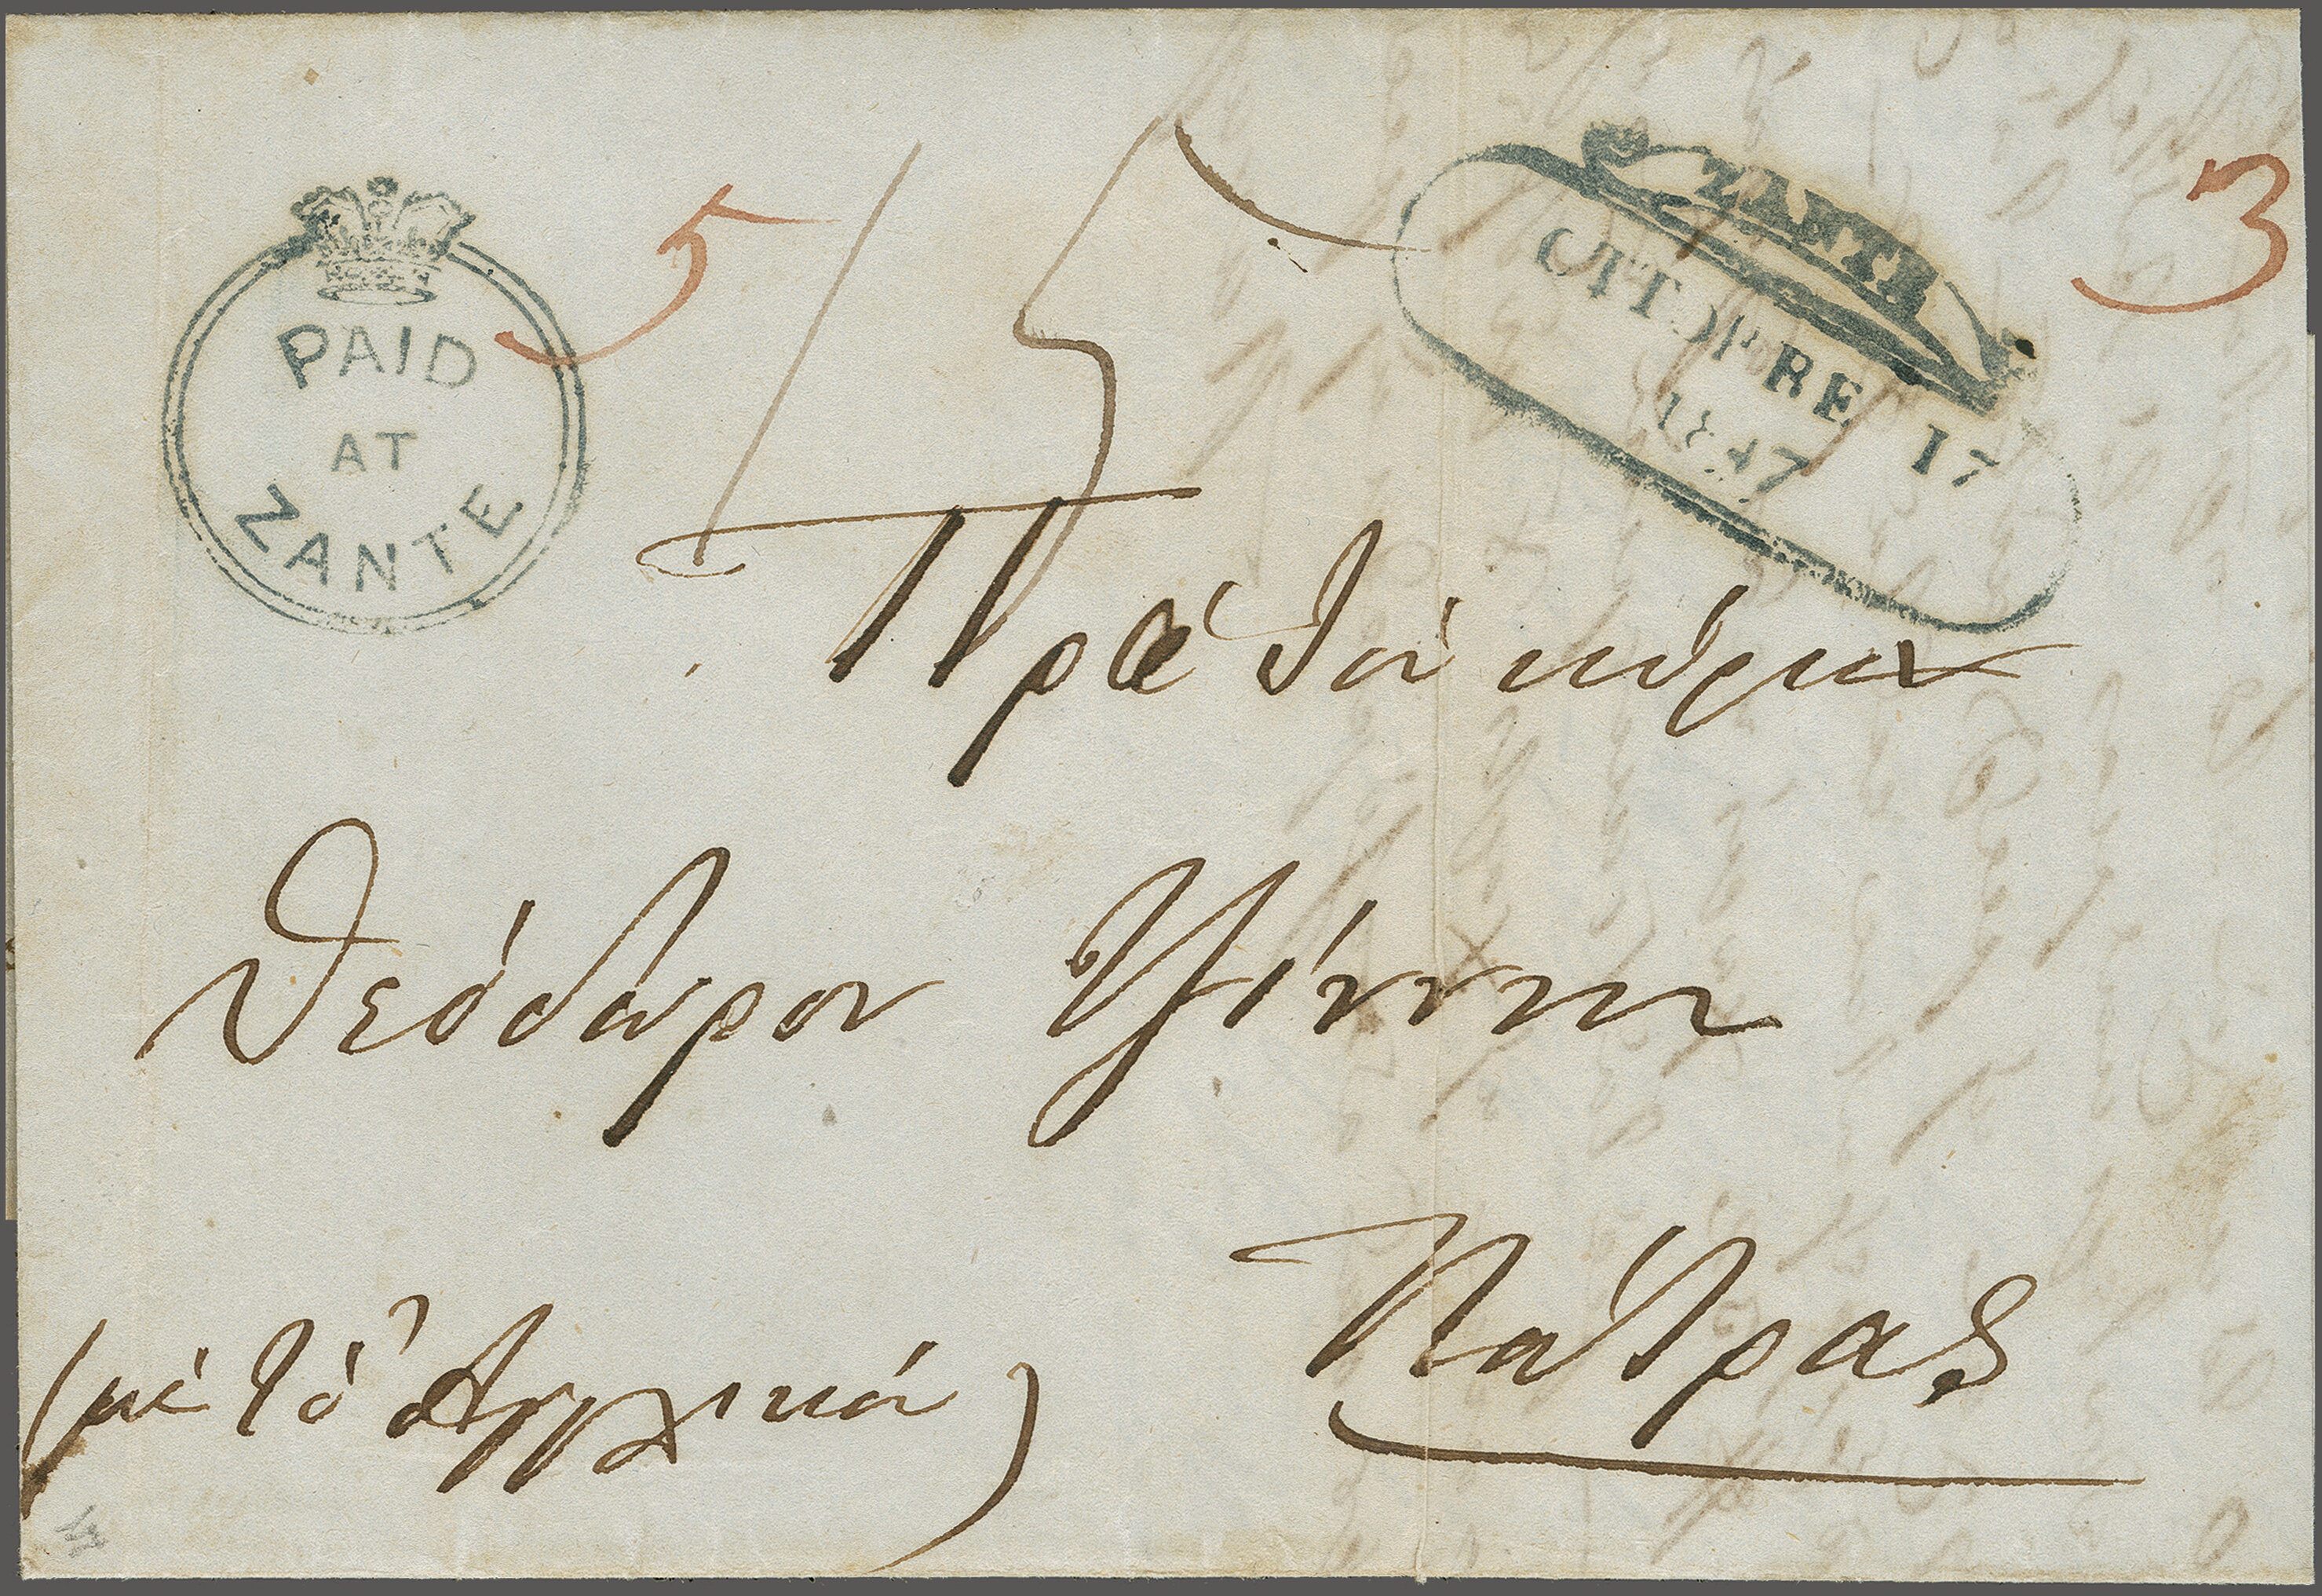 PAID
AT
ZANTE
5
15
ZANTE
OTTOBRE 17
1847
3
Πρὸς τὸν κύριον
Θεόδωρον Τζίννην
Πάτρας
(μὲ τὸ Ἀγγλικὸν)